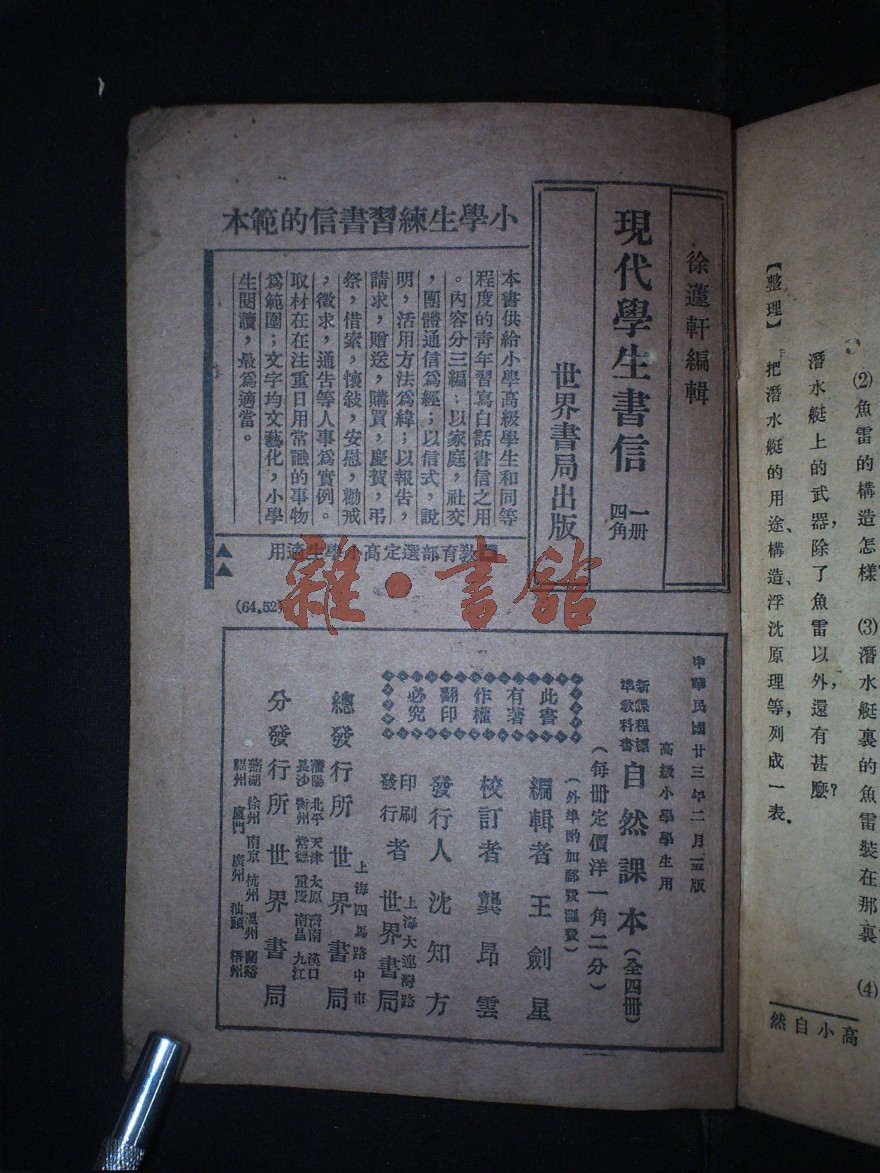 【整理】
(2)魚雷的構造怎樣
(3)潛水艇裏的魚雷裝在那裏
(4)
潛水艇上的武器,除了魚雷以外,還有甚麼?
把潛水艇的用途、構造、浮沈原理等,列成一表.
高小自然
徐蘧軒編輯
現代學生書信
一册
四角
世界書局出版
小學生練習書信的範本
本書供給小學高級學生和同等
程度的青年習寫白話書信之用
。內容分三編:以家庭,社交
,團體通信爲經;以信式,說
明,活用方法爲緯;以報告,
請求,贈送,購買,慶賀,弔
祭,借索,懷敍,安慰,勸戒
,徵求,通告等人事爲實例。
取材在在注重日用常識的事物
爲範圍;文字均文藝化,小學
生閱讀,最爲適當。
教育部選定高小學生適用
(64.52)
雜·書館
中華民國廿三年二月 版
高級小學學生用
新課程標
準教科書
自然課本(全四册)
(每册定價洋一角二分)
(外埠酌加郵費滙費)
此書
有著
作權
翻印
必究
編輯者 王劍星
校訂者 龔昂雲
發行人 沈知方
印刷
發行
者
上海大連灣路
世界書局
上海四馬路中市
總發行所 世界書局
瀋陽 北平 天津 太原 濟南 漢口
長沙 衡州 常德 重慶 南昌 九江
分發行所 世界書局
蕪湖 徐州 南京 杭州 溫州 蘭谿
福州 廈門 廣州 汕頭 梧州